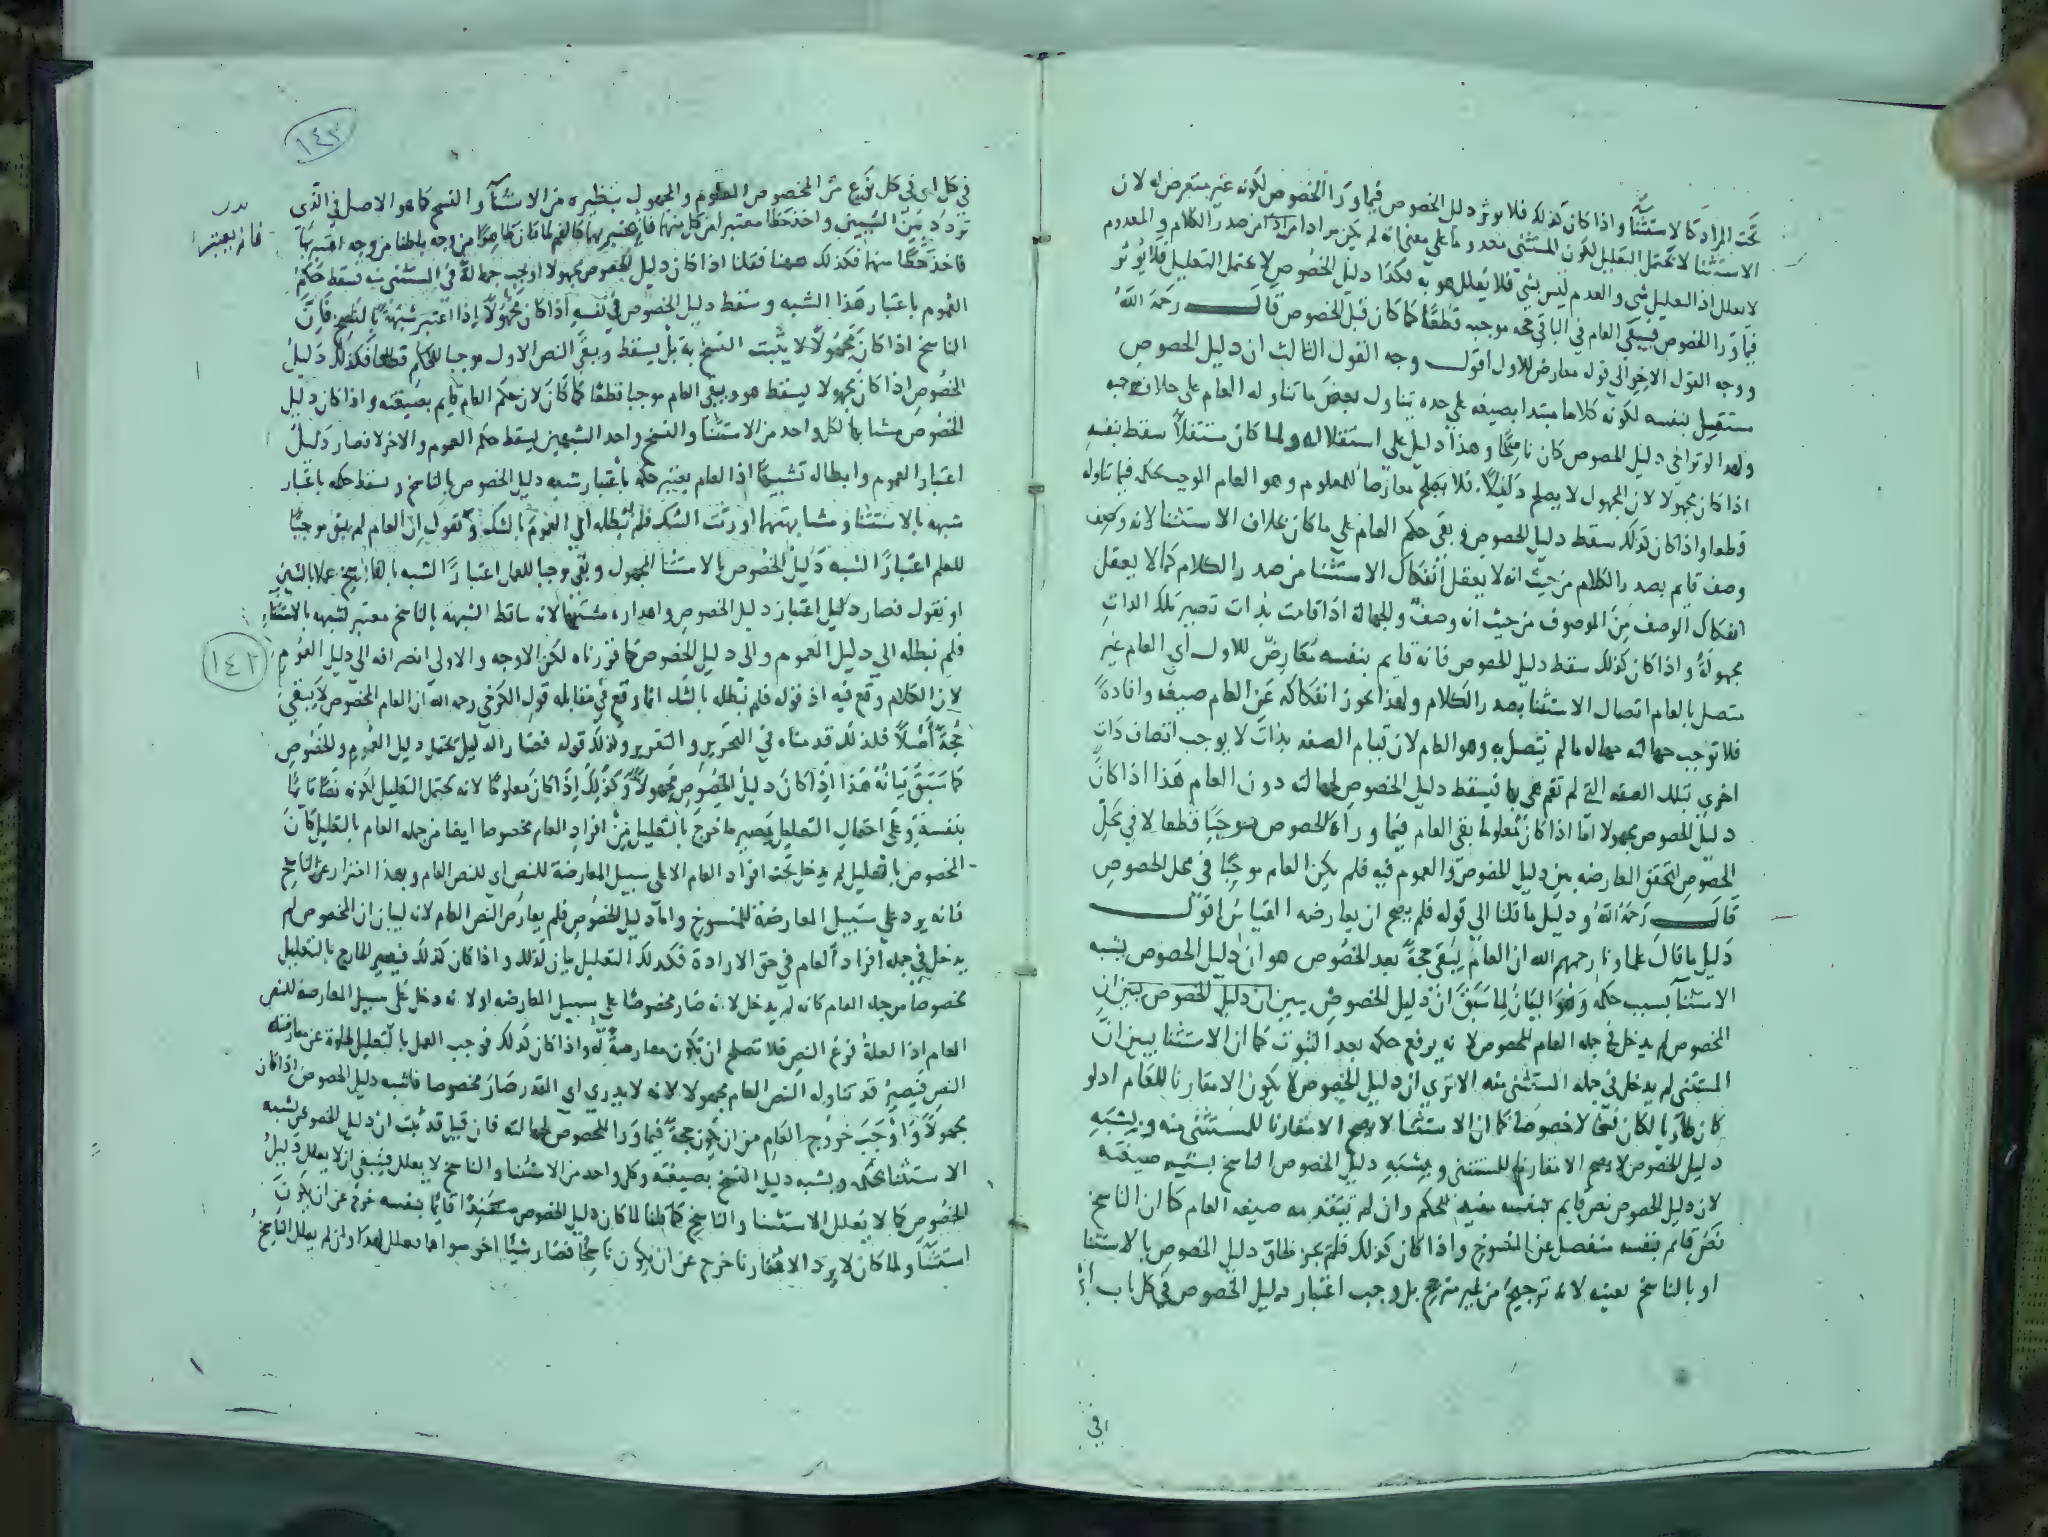 تحت المراد كالاستثناء واذا كان كذلك فلا يوثر دليل الخصوص فيما ورا الخصوص لكونه غير متعرض له لان
الاستثنا لا يحتمل التعليل لكون المستثنى معدوما على معنى انه لم يكن مرادا من صدر الكلام والمعدوم
لا يعلل اذ التعليل شي والعدم ليس بشي فلا يعلل هو به فكذا دليل الخصوص لا يحتمل التعليل فلا يوثر
فيما ورا الخصوص فيبقى العام في الباقي حجه موجبه قطعا كما كان قبل الخصوص قال رحمه الله
ووجه القول الاخر الى قوله معارض للاول اقول وجه القول الثالث ان دليل الخصوص
مستقل بنفسه لكونه كلاما مبتدا بصيغه على حده يتناول بعض ما تناوله العام على خلاف موجبه
ولهذا لو تراخى دليل الخصوص كان ناسخا وهذا دليل على استقلاله ولما كان مستقلا سقط بنفسه
اذا كان مجهولا لان المجهول لا يصلح دليلا فلا يصلح معارضا للمعلوم وهو العام الموجب حكمه فيما تناوله
قطعا واذا كان كذلك سقط دليل الخصوص وبقى حكم العام على ما كان بخلاف الاستثنا لانه وصف
وصف قايم بصدر الكلام من حيث انه لا يعقل انفكاك الاستثنا من صدر الكلام كما لا يعقل
انفكاك الوصف من الموصوف من حيث انه وصف والجهالة اذا قامت بذات تصير تلك الذات
مجهولة واذا كان كذلك سقط دليل الخصوص فانه قايم بنفسه معارض للاول اي العام غير
متصل بالعام اتصال الاستثنا بصدر الكلام ولهذا يجوز انفكاكه عن العام صيغه وافادة
فلا توجب جهالته جهاله ما لم يتصل به وهو العام لان قيام الصفه بذات لا يوجب اتصاف ذات
اخرى بتلك الصفه التي لم تقم هي بها فيسقط دليل الخصوص لجهالته دون العام هذا اذا كان
دليل الخصوص مجهولا اما اذا كان معلوما بقى العام فيما وراء الخصوص موجبا قطعا لا في محل
الخصوص لتحقق المعارضه بين دليل الخصوص والعموم فيه فلم يكن العام موجبا في محل الخصوص
قال رحمه الله ودليل ما قلنا الى قوله فلم يصح ان يعارضه القياس اقول
دليل ما قال علماونا رحمهم الله ان العام يبقى حجة بعد الخصوص هو ان دليل الخصوص يشبه
الاستثنا بسبب حكمه وهو البيان لما سبق ان دليل الخصوص يبين ان دليل الخصوص يبين ان
المخصوص لم يدخل في جمله العام المخصوص لا نه يرفع حكمه بعد الثبوت كما ان الاستثنا يبين ان
المستثنى لم يدخل في جمله المستثنى منه الا ترى ان دليل الخصوص لا يكون الا مقارنا للعام اذ لو
كان طاريا لكان نسخا لا خصوصا كما ان الاستثنا لا يصح الا مقارنا للمستثنى منه ويشبه
دليل الخصوص لا يصح الا مقارنا للمستثنى ويشبه دليل الخصوص الناسخ بسبب صيغته
لان دليل الخصوص نص قايم بنفسه مفيد للحكم وان لم تتقدمه صيغه العام كما ان الناسخ
نص قائم بنفسه منفصل عن المنسوخ واذا كان كذلك فلم يجز الحاق دليل الخصوص بالاستثنا
او بالناسخ بعينه لانه ترجيح من غير مرجح بل وجب اعتبار دليل الخصوص في كل باب
١٤٣
في كل اى في كل نوع من المخصوص المعلوم والمجهول بنظيره من الاستثنآ والنسخ كما هو الاصل في الذي
تردد بين الشيئين واخذ حظا معتبرا من كل منهما فانه يعتبر بهما كالفم لما كان ظاهرا من وجه باطنا من وجه اعتبر بهما
فاخذ حظا منهما فكذلك ههنا فقلنا اذا كان دليل الخصوص مجهولا اوجب جهالة في المستثنى منه فسقط حكم
العموم باعتبار هذا الشبه وسقط دليل الخصوص في نفسه اذا كان مجهولا اذا اعتبر شبهه بالناسخ فان
الناسخ اذا كان مجهولا لا يثبت النسخ به بل يسقط وبقى النص الاول موجبا للحكم قطعا فكذلك دليل
الخصوص اذا كان مجهولا يسقط هو ويبقى العام موجبا قطعا كما كان لان حكم العام قايم بصيغته واذا كان دليل
الخصوص مشابها لكل واحد من الاستثنا والنسخ واحد الشبهين يسقط حكم العموم والاخر لا فصار دليل
اعتبار العموم وابطاله اذا العام يعتبر حكمه باعتبار شبه دليل الخصوص بالناسخ وسقط حكمه باعتبار
شبهه بالاستثنا ومشابهتهما اورثت الشك فلم نبطله اي العموم بالشك ونقول ان العام لم يبق موجبا
للعلم اعتبارا لشبه دليل الخصوص بالاستثنا المجهول وبقى موجبا للعمل اعتبارا لشبهه بالناسخ عملا بالشبهين
او نقول فصار دليل اعتبار دليل الخصوص واهداره مشتبها لانه ساقط الشبهه بالناسخ معتبر لشبهه بالاستثناء
فلم نبطله الى دليل العموم والى دليل الخصوص كما قررناه لكن الاوجه والاولى انصرافه الى دليل العموم
لان الكلام وقع فيه اذ قوله فلم نبطله بالشك انما وقع في مقابله قول الكرخى رحمه الله ان العام المخصوص لا يبقى
حجة اصلا فلذلك قدمناه في التحرير والتقرير وكذلك قوله فصار الدليل يحتمل دليل العموم والخصوص
كما سبق بيانه هذا اذا كان دليل الخصوص مجهولا وكذلك اذا كان معلوما لانه يحتمل التعليل لكونه نصا قائما
بنفسه وعلى احتمال التعليل يصير ما خرج بالتعليل من افراد العام مخصوصا ايضا من جمله العام بالتعليل كان
المخصوص بالتعليل لم يدخل تحت افراد العام الا على سبيل المعارضة للنص اي للنص العام وبهذا احتراز عن الناسخ
فانه يرد على سبيل المعارضة للمنسوخ واما دليل الخصوص فلم يعارض النص العام لانه لبيان ان المخصوص لم
يدخل في جمله افراد العام في حق الارادة فكذلك التعليل يبين كذلك واذا كان كذلك فيصير الخارج بالتعليل
مخصوصا من جمله العام كانه لم يدخل لا نه صار مخصوصا على سبيل المعارضه اولا نه دخل على سبيل المعارضه للنص
العام اذ العلة فرع النص فلا تصلح ان تكون معارضة له واذا كان كذلك فوجب العمل بالتعليل لخلوه عن معارضة
النص فيصير قد تناوله النص العام مجهولا لانه لا يدرى اي القدر صار مخصوصا فاشبه دليل الخصوص اذا كان
مجهولا واوجب خروج العام من ان يكون حجة فيما ورا المخصوص لجهالته فان قيل قد ثبت ان دليل الخصوص يشبه
الاستثنا بحكمه ويشبه دليل النسخ بصيغته وكل واحد من الاستثنا والناسخ لا يعلل فينبغى ان لا يعلل دليل
الخصوص كما لا يعلل الاستثنا والناسخ كما قلنا لما كان دليل الخصوص قايما بنفسه خرج عن ان يكون
استثنآ ولما كان لا يرد الا مقارنا خرج عن ان يكون ناسخا فصار شيئا اخر سواهما يعلل لهذا وان لم يعلل الناسخ
فانه يعتبر
١٤٢